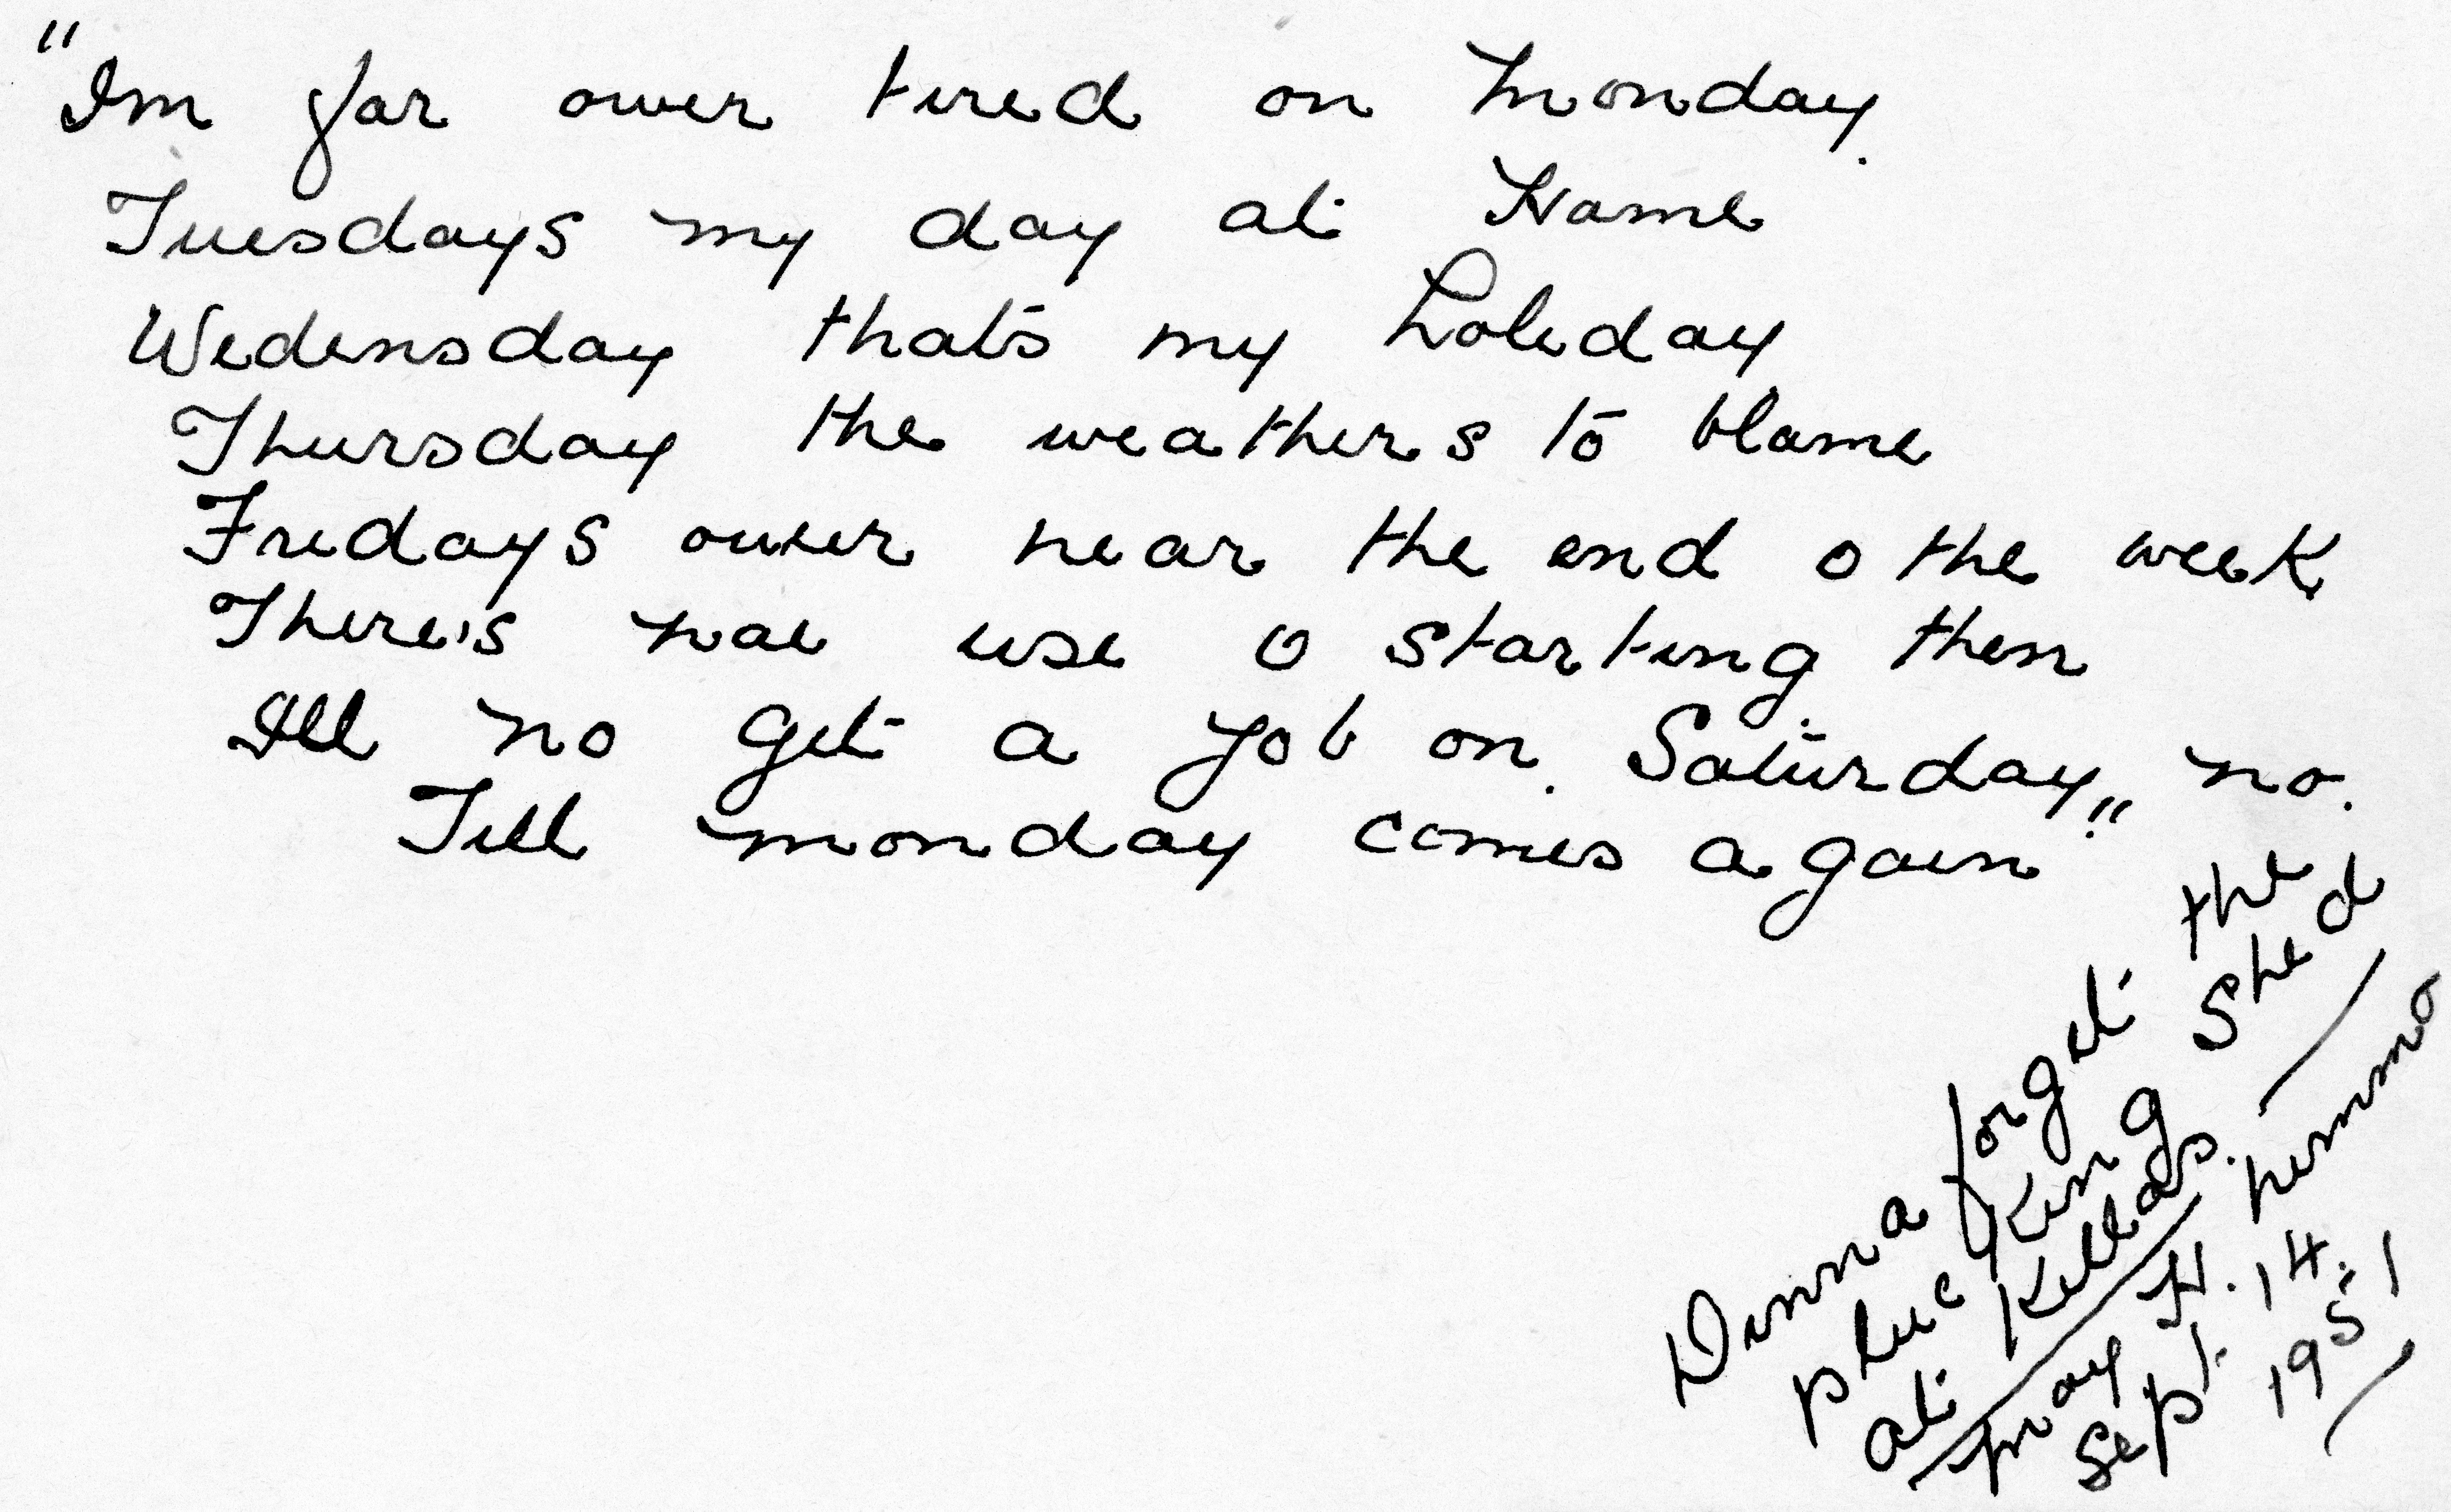 "Im far ower tired on Monday.
Tuesdays my day at Hame
Wedensday that's my holiday
Thursday the weathers to blame
Fridays ower near the end o the week
There's nae use o starting then
Ill no get a job on Saturday, no.
Till monday comes again"
Dinna forget the
plucking shed
at Killas.
May H.
Sept. 14.
1951